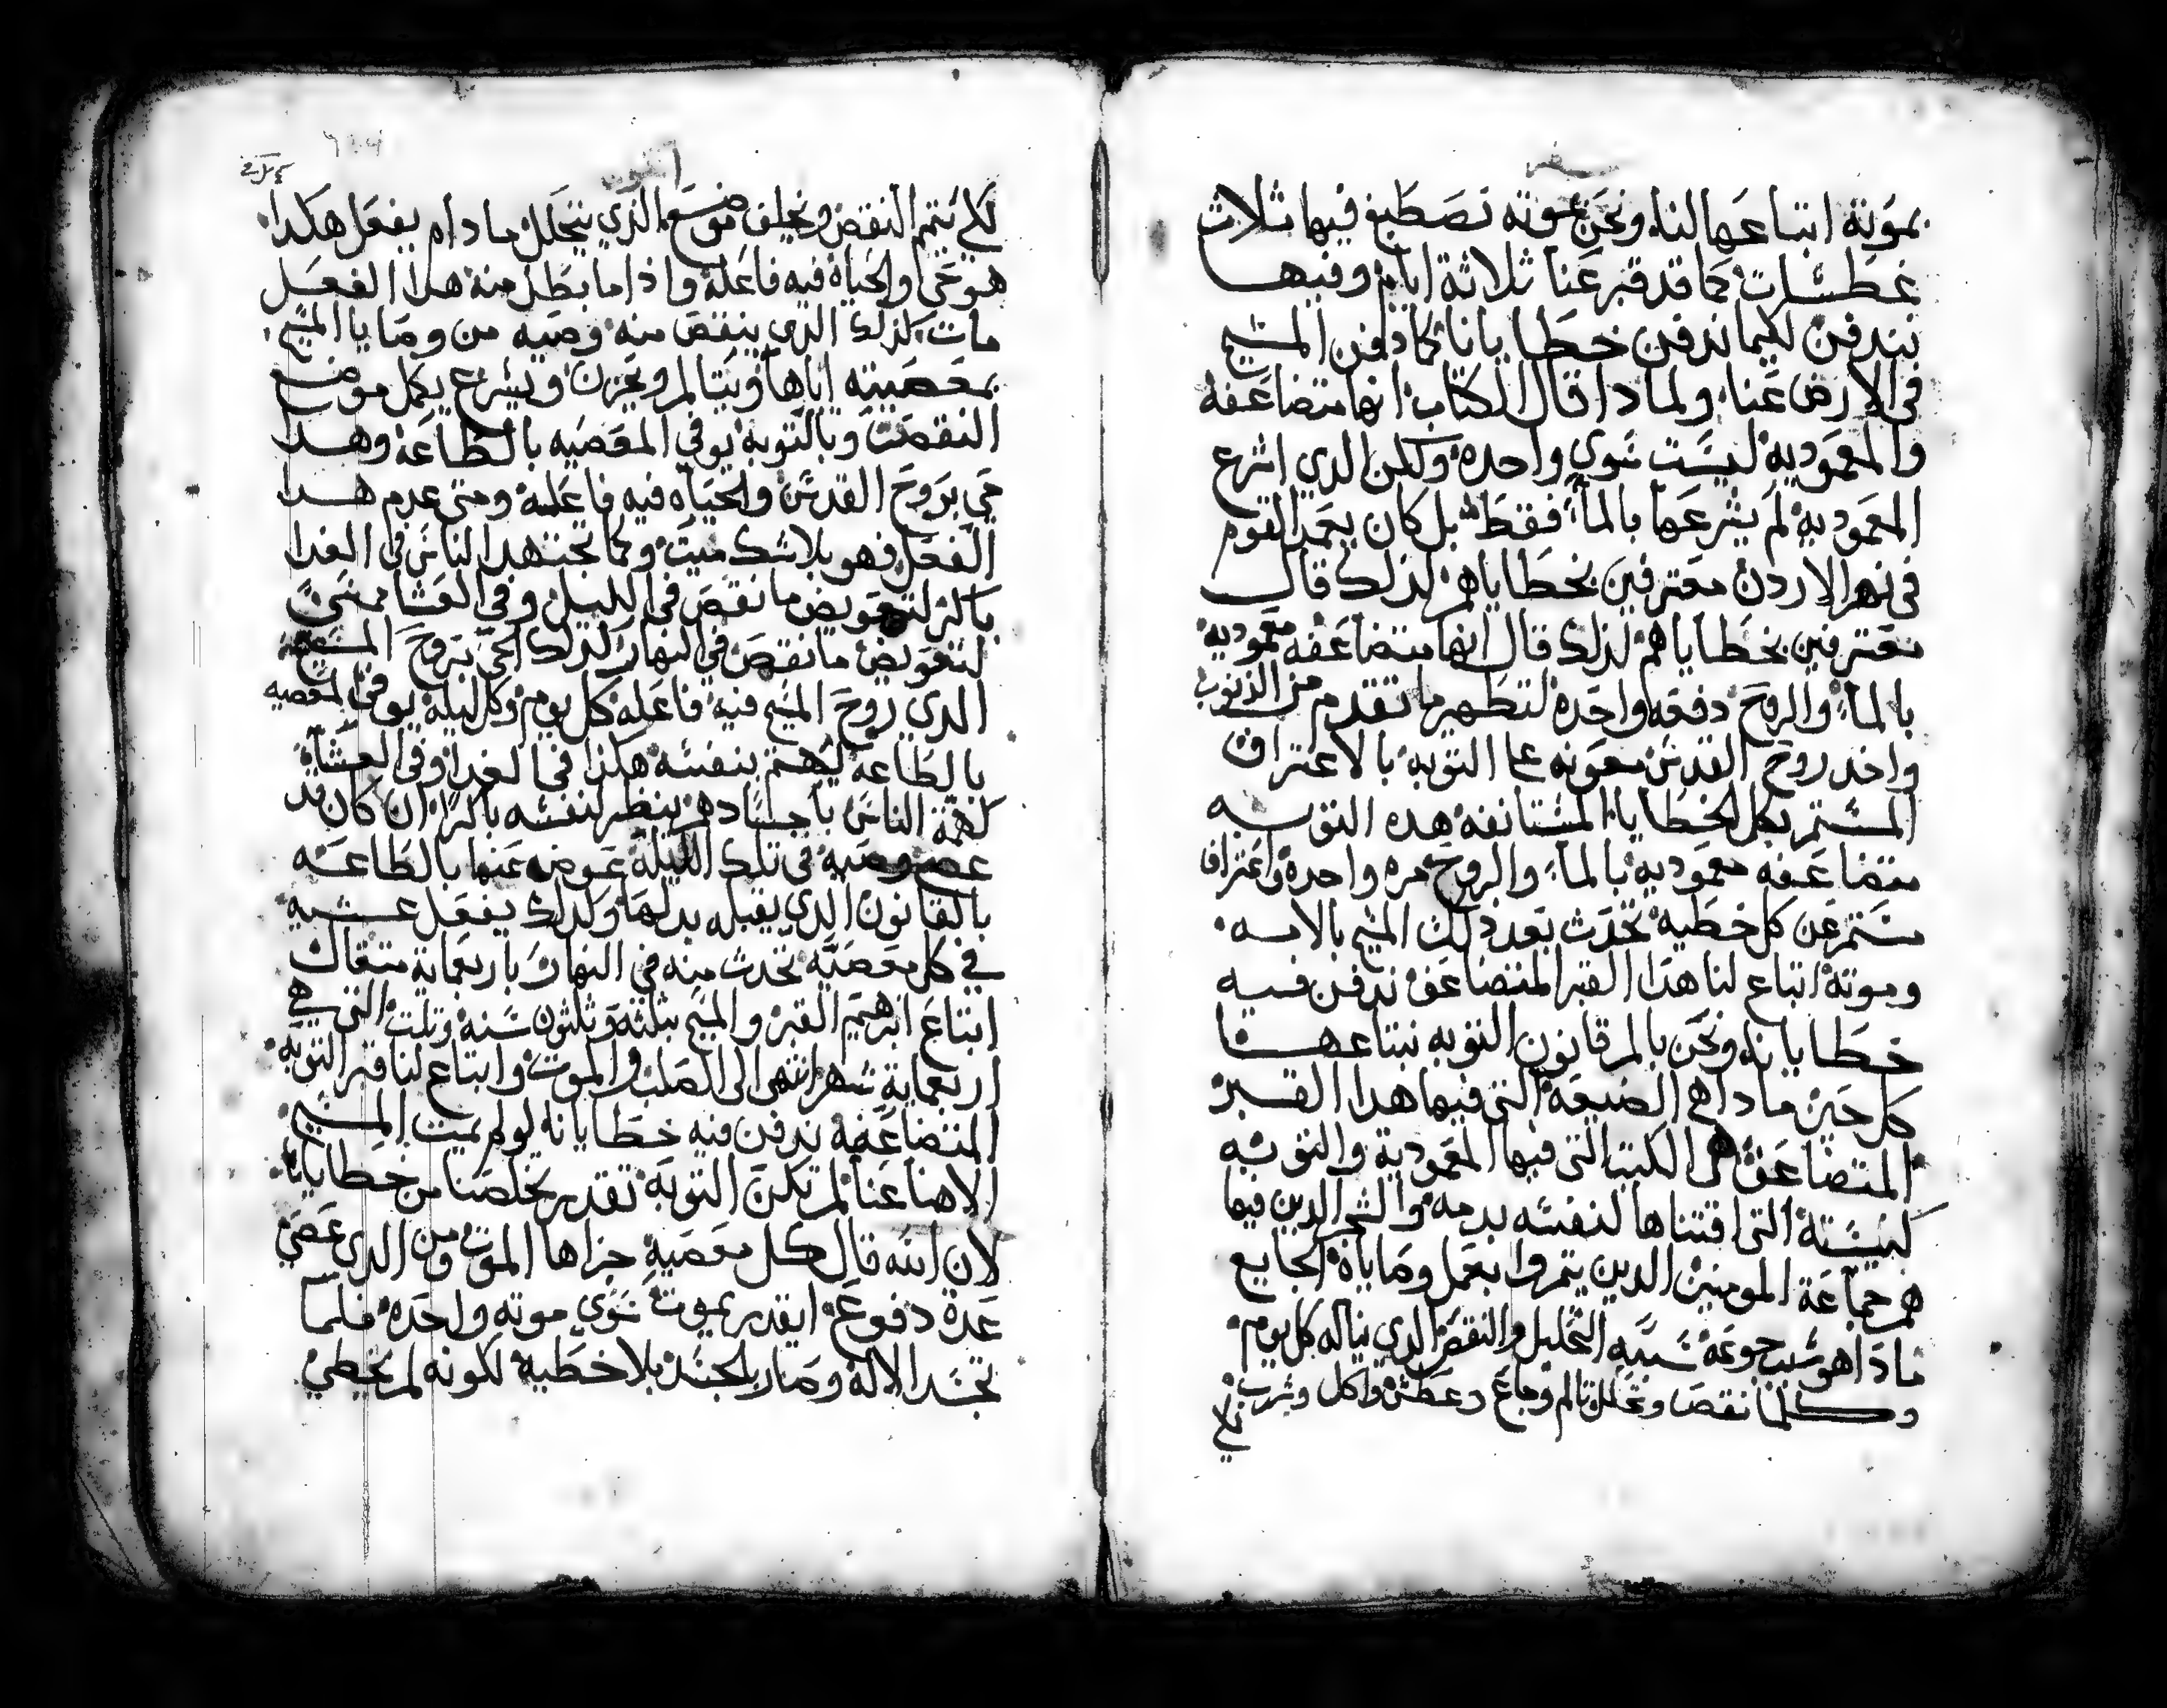 بموته ابتاعها لنا، ونحن بموته نصطبغ فيها ثلاث
غطسات كما قد قبر عنا ثلاثة ايام وفيها
نندفن لكيما ندفن خطايانا كما دفن المسيح
فى الارض عنا، ولمادا قال الكتاب انها متضاعفه
والمعموديه ليست سوي واحده ولكن الدي اشرع
المعموديه لم يشرعها بالما فقط بل كان يعمد القوم
فى نهر الاردن معترفين بخطاياهم لذلك قال
معترفين بخطاياهم لذلك قال انها متضاعفه معموديه
بالما والروح دفعه واحده لتطهير ما تقدم من الذنوب
واخد روح القدس معونه على التوبه بالاعتراف
المستمر بكل الخطايا المستانفه هده التوبه
متضاعفه معموديه بالما والروح مره واحده واعتراف
مستمر عن كل خطيه تحدث بعد ذلك المسيح بالامه
وموته ابتاع لنا هدا القبر المتضاعف ندفن فيه
خطايانا ونحن بالم قانون التوبه نبتاعها
كل حين مادا هي الضيعة التى فيها هدا القبر
المتضاعف هى الكنيسة التى فيها المعمودية والتوبه
كنيسته التى اقتناها لنفسه بدمه والشجر الدين فيها
هم جماعة المومنين الدين يتمروا بعمل وصاياه الجايع
مادا هو سبب جوعه سببه التحليل والنقص الدي يناله كل يوم
وكلما نقص وتحلل تالم وجاع وعطش واكل وشرب
لكي
لكي يتمم النقص ويخلف موضع الذي يتحلل مادام يفعل هكدا
هو حي والحياه فيه فاعله واذا ما بطل منه هدا الفعل
مات كذلك الذي ينقص منه وصيه من وصايا المسيح
بمعصيته اياها ويتالم ويحزن ويسرع يكمل موضع
النقص وبالتوبه يوفي المعصيه بالطاعه وهدا
حي بروح القدس والحياه فيه فاعله ومتى عدم هدا
الفعل فهو بلا شك ميت وكما يجتهدا الناس فى الغدا
باكر لتعويض ما نقص فى الليل وفى العشا
لتعويض ما نقص في النهار كدلك الحي بروح المسيح
الدي روح المسيح فيه فاعله كل يوم وكل ليله يوفى المعصيه
بالطاعه يهتم بنفسه هكذا فى الغدا وفى العشا
كهمة الناس باجسادهم ينظر لنفسه باكرا ان كان قد
عصى وصيه فى تلك الليله عوضه عنها بالطاعه
بالقانون الدي يقبله بدلها وكدلك يفعل عشيه
في كل معصيه تحدث منه في النهار باربعماية متقال
ابتاع ابرهيم القبر والمسيح بثلثة وثلثون سنه وثلث التى هي
اربعماية شهر انتهى الى الصلب والموت وابتاع لنا قبر التوبه
المتضاعفه ندفن فيه خطايانا لو لم يمت المسيح
الاهنا عنا لم تكن التوبه تقدر تخلصنا من خطايانا
لان الله قال كل معصيه جزاها الموت ومن الدى عصى
عدة دفوع ايقدر يموت سوى موته واحده فلما
تجسد الاله وصار بالجسد بلا خطيه لكونه لم يخطي